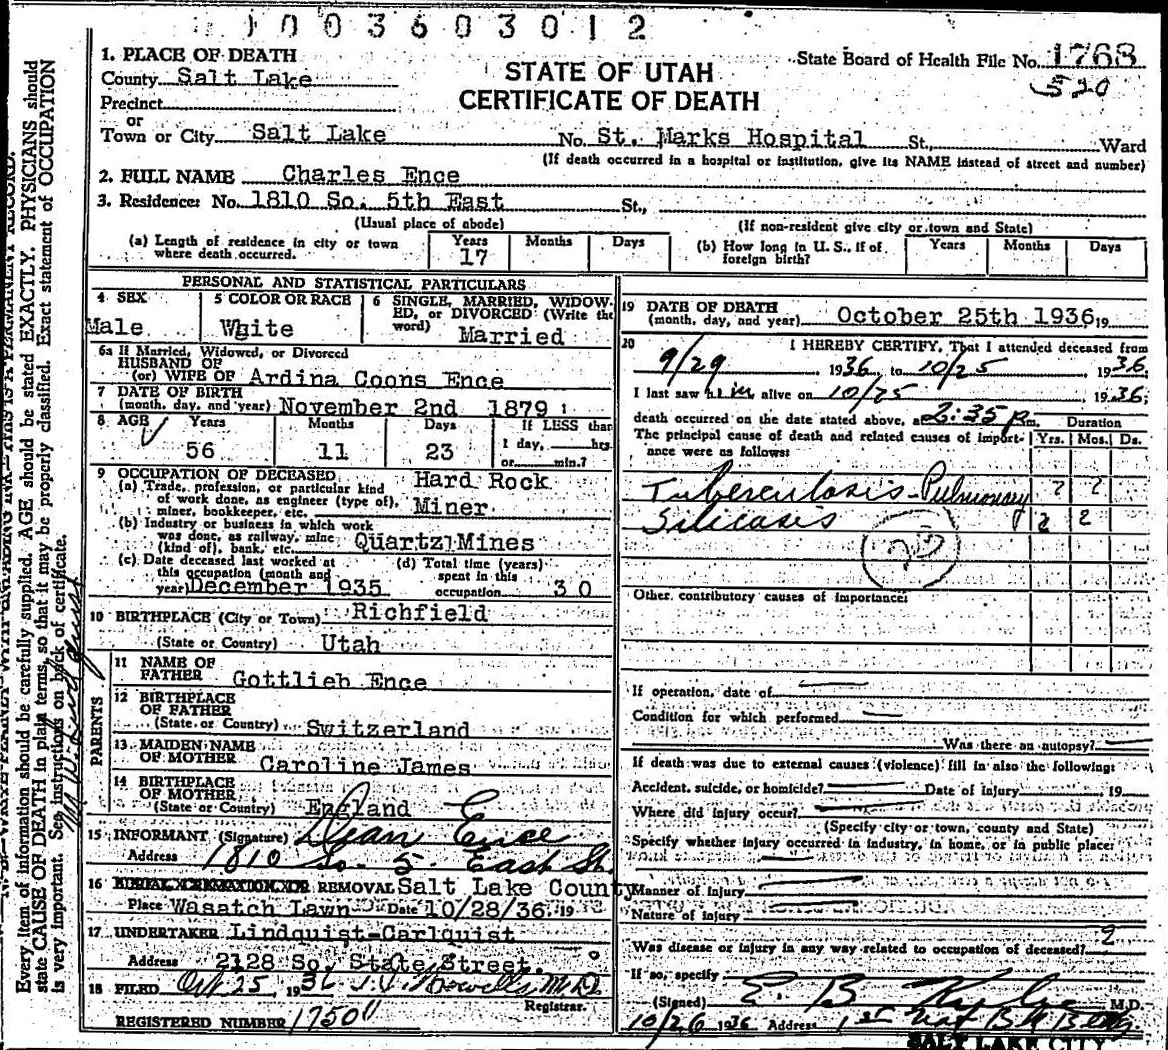 1003603012
1. PLACE OF DEATH
State Board of Health File No. 1768
County Salt Lake
STATE OF UTAH
530
Precinct
CERTIFICATE OF DEATH
or
Town or City Salt Lake No. St. Marks Hospital St., Ward
(If death occurred in a hospital or institution, give its NAME instead of street and number)
2. FULL NAME Charles Ence
3. Residence: No. 1810 So. 5th East St.,
(Usual place of abode) (If non-resident give city or town and State)
(a) Length of residence in city or town where death occurred. Years 17 Months Days
(b) How long in U. S., if of foreign birth? Years Months Days
PERSONAL AND STATISTICAL PARTICULARS
4 SEX Male
5 COLOR OR RACE White
6 SINGLE, MARRIED, WIDOWED, or DIVORCED (Write the word) Married
6a If Married, Widowed, or Divorced
HUSBAND OF
(or) WIFE OF Ardina Coons Ence
7 DATE OF BIRTH
(month, day, and year) November 2nd 1879
8 AGE Years Months Days If LESS than
56 11 23 1 day, hrs.
or min.?
9 OCCUPATION OF DECEASED Hard Rock
(a) Trade, profession, or particular kind
of work done, as engineer (type of), Miner
miner, bookkeeper, etc.
(b) Industry or business in which work
was done, as railway, mine Quartz Mines
(kind of), bank, etc.
(c) Date deceased last worked at
this occupation (month and
year) December 1935
(d) Total time (years)
spent in this
occupation 30
10 BIRTHPLACE (City or Town) Richfield
(State or Country) Utah
PARENTS
11 NAME OF
FATHER Gottlieb Ence
12 BIRTHPLACE
OF FATHER
(State or Country) Switzerland
13 MAIDEN NAME
OF MOTHER Caroline James
14 BIRTHPLACE
OF MOTHER
(State or Country) England
15 INFORMANT (Signature) Dean Ence
Address 1810 So 5 East St.
16 BURIAL, CREMATION, OR REMOVAL Salt Lake County
Place Wasatch Lawn Date 10/28/36 19
17 UNDERTAKER Lindquist-Carlquist
Address 2128 So. State Street.
18 FILED Oct 25, 1936 Howells M.D.
Registrar.
REGISTERED NUMBER 1750
19 DATE OF DEATH
(month, day, and year) October 25th 1936 19
20 I HEREBY CERTIFY, That I attended deceased from
9/29 1936 to 10/25 1936
I last saw him alive on 10/25, 1936;
death occurred on the date stated above, at 2:35 Pm. Duration
The principal cause of death and related causes of importance were as follows: Yrs. Mos. Ds.
Tuberculosis-Pulmonary ? ?
Silicosis ? ?
Other contributory causes of importance:
If operation, date of
Condition for which performed
Was there an autopsy?
If death was due to external causes (violence) fill in also the following:
Accident, suicide, or homicide? Date of injury 19
Where did injury occur?
(Specify city or town, county and State)
Specify whether injury occurred in industry, in home, or in public place:
Manner of injury
Nature of injury
Was disease or injury in any way related to occupation of deceased? ?
If so, specify
(Signed) E. B. M.D.
10/26 1936 Address 1st Nat Bk Bldg.
SALT LAKE CITY
Every item of information should be carefully supplied. AGE should be stated EXACTLY. PHYSICIANS should
state CAUSE OF DEATH in plain terms, so that it may be properly classified. Exact statement of OCCUPATION
is very important. See instructions on back of certificate.